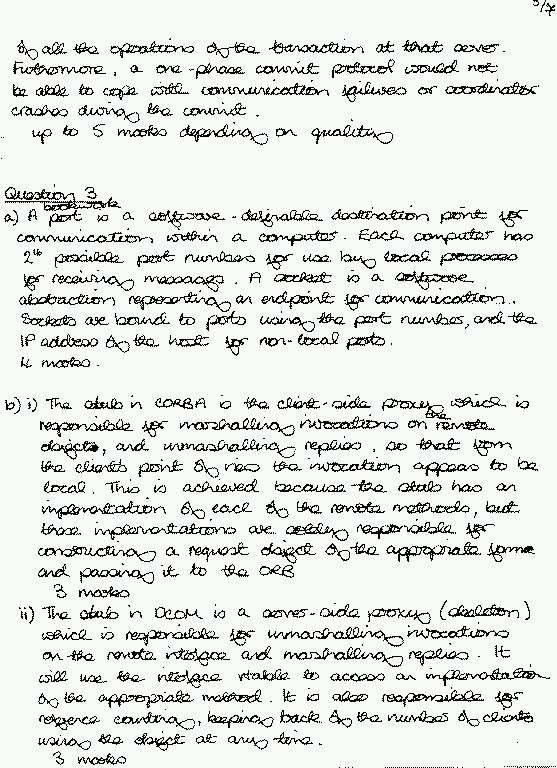 5/7
of all the operations of the transaction at that server.
Futhermore, a one-phase commit protocol would not
be able to cope with communication failures or coordinator
crashes during the commit.
up to 5 marks depending on quality
Question 3
bookwork
a) A port is a software-definable destination point for
communication within a computer. Each computer has
2¹⁶ possible port numbers for use by local processes
for receiving messages. A socket is a software
abstraction representing an endpoint for communication.
Sockets are bound to ports using the port number, and the
IP address of the host for non-local ports.
4 marks.
b) i) The stub in CORBA is the client-side proxy which is
responsible for marshalling invocations on the remote
objects, and unmarshalling replies, so that from
the clients point of view the invocation appears to be
local. This is achieved because the stub has an
implementation of each of the remote methods, but
these implementations are solely responsible for
constructing a request object of the appropriate form
and passing it to the ORB
3 marks
ii) The stub in DCOM is a server-side proxy (skeleton)
which is responsible for unmarshalling invocations
on the remote interface and marshalling replies. It
will use the interface vtable to access an implementation
of the appropriate method. It is also responsible for
reference counting, keeping track of the number of clients
using the object at any time.
3 marks